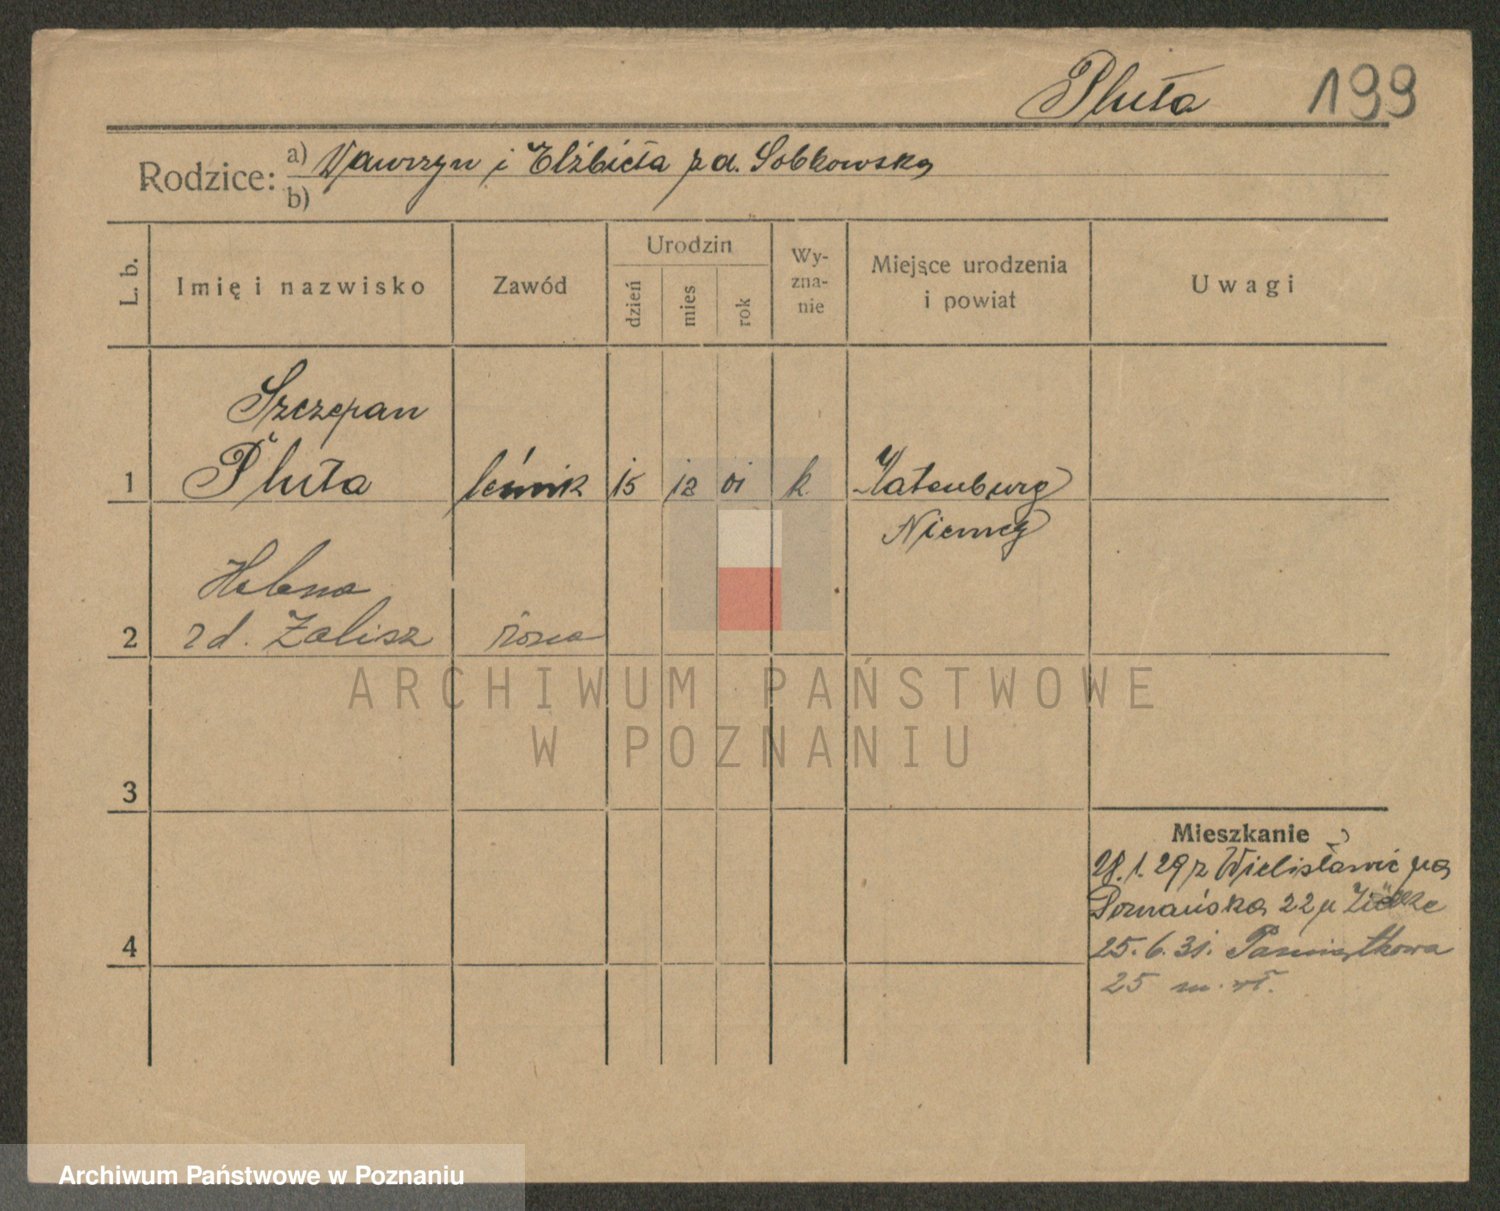 Pluta 199
Rodzice: a) Wawrzyn i Elżbieta zd. Sobkowska
b)
L. b. Imię i nazwisko Zawód Urodzin dzień mies rok Wy-zna-nie Miejsce urodzenia i powiat Uwagi
Szczepan
1 Pluta leśnik 15 12 01 k. Katenburg
Niemcy
Helena
2 zd. Zalisz żona
ARCHIWUM PAŃSTWOWE
W POZNANIU
3
Mieszkanie
28.1.29 z Wielisławic na
Poznańska 22 u
4
25.6.31. Pamiątkowa
25 m. wł.
Archiwum Państwowe w Poznaniu